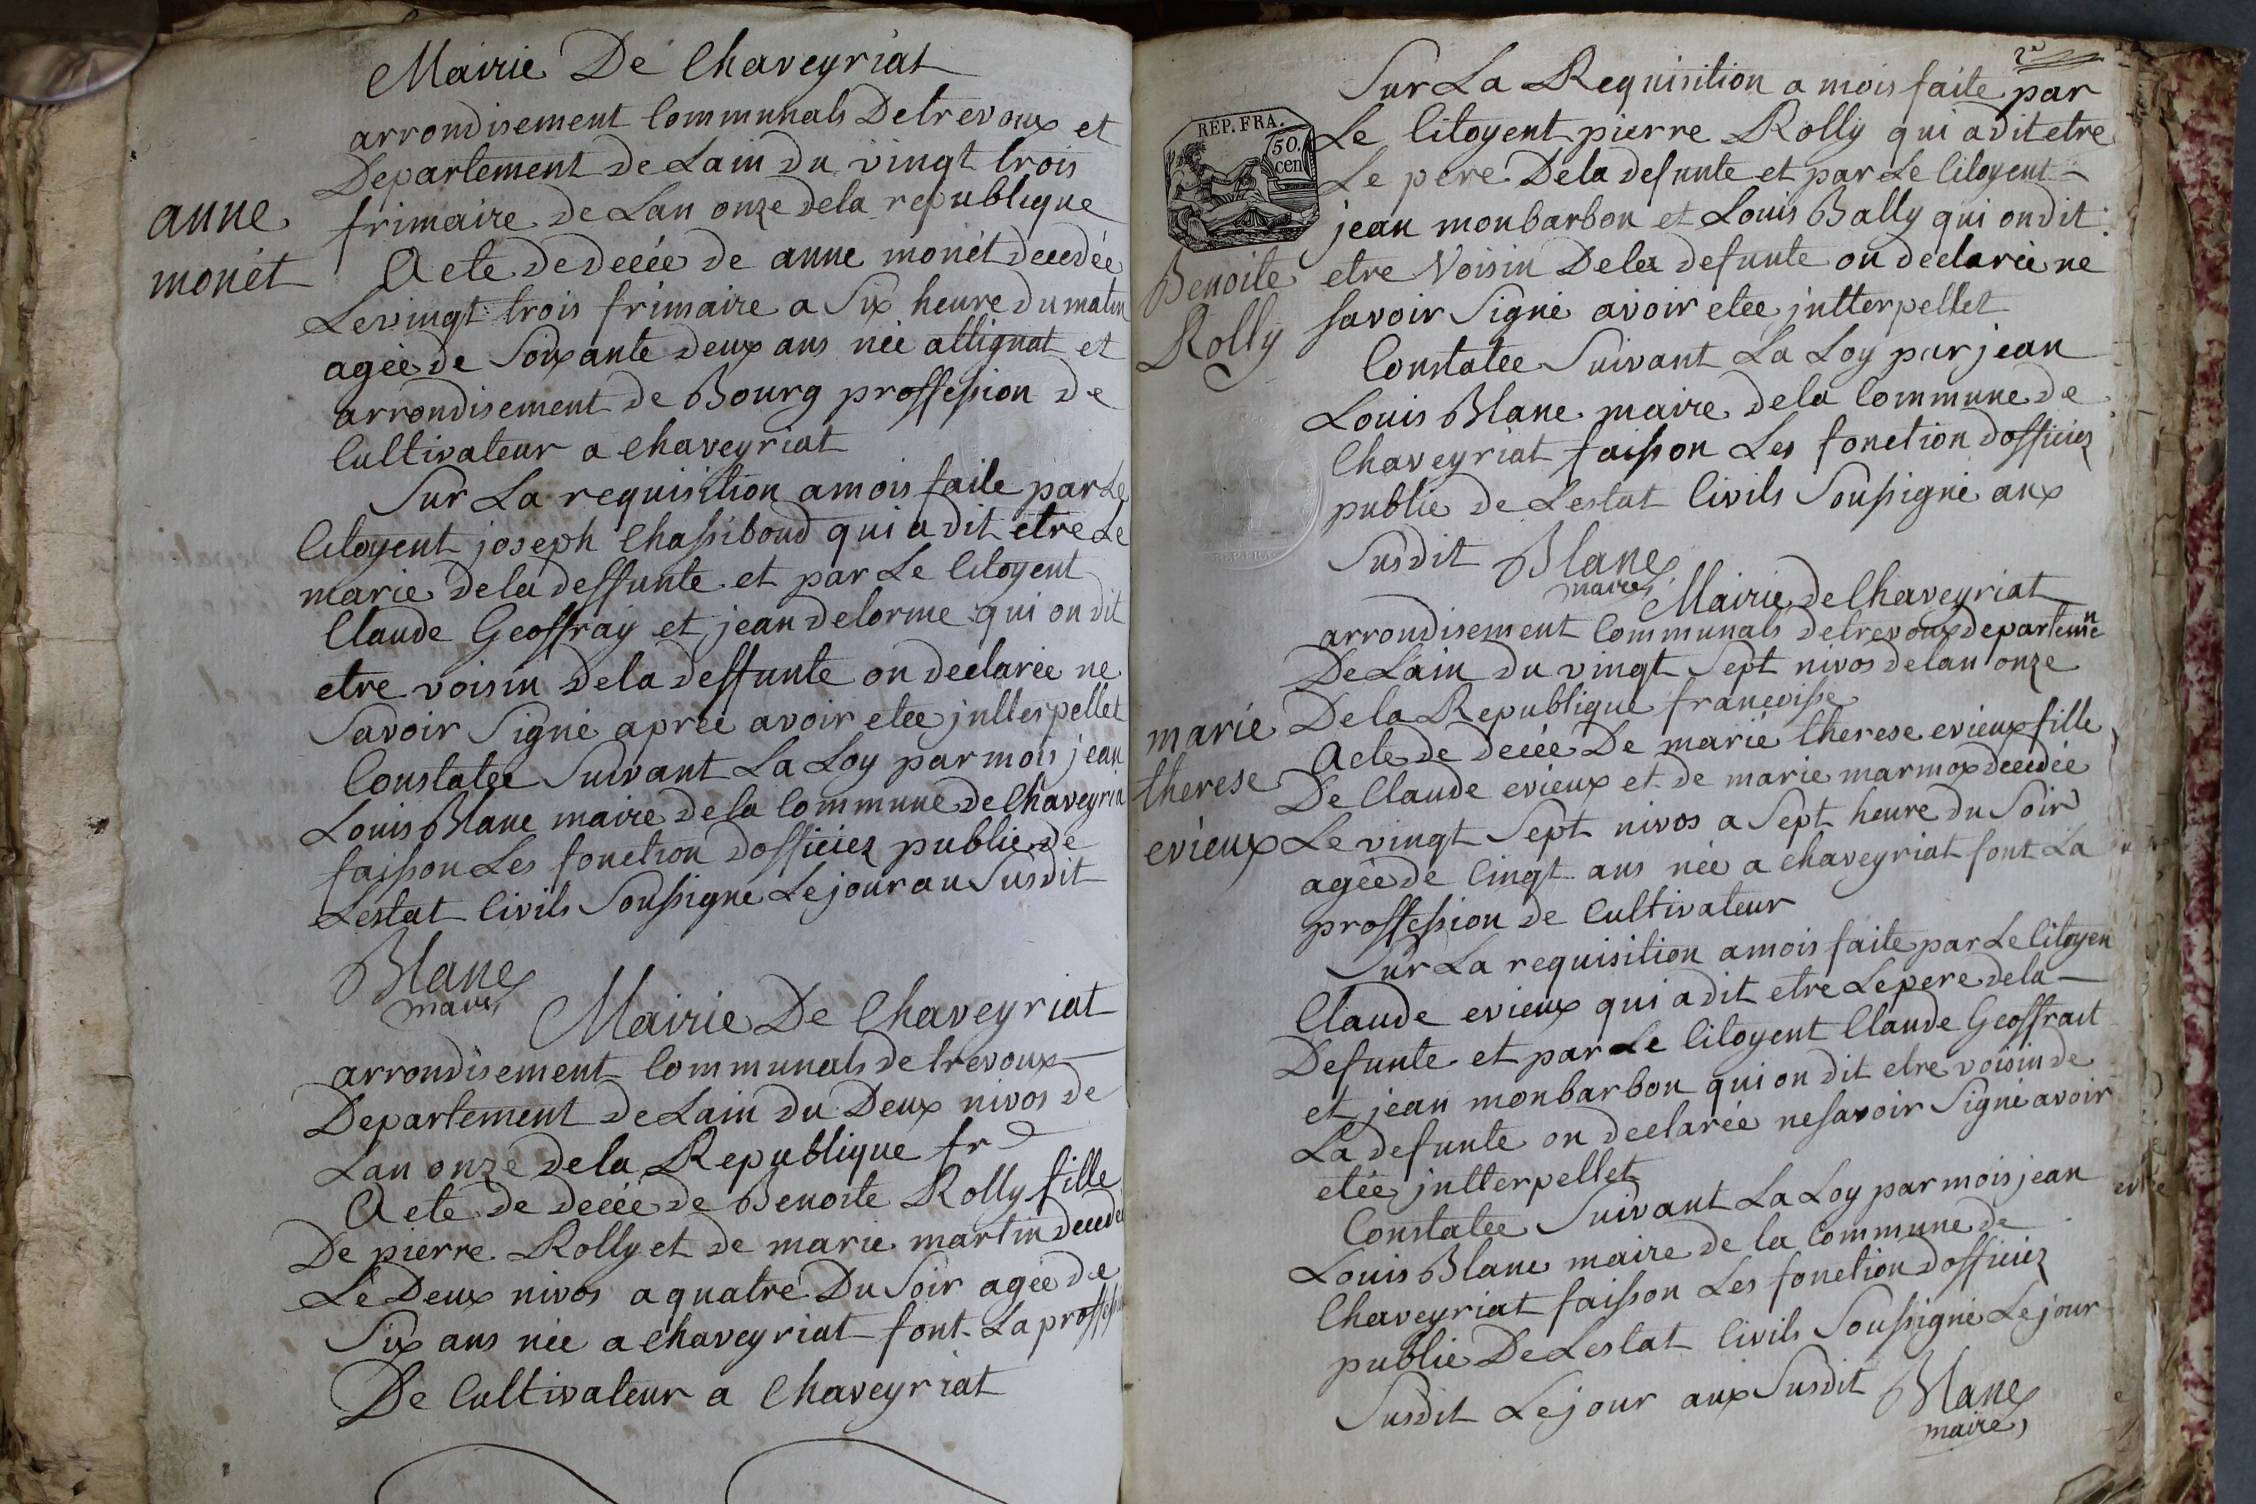 Mairie De Chaveyriat
arrondisement Communals Detrevoux et
Departement de Lain du vingt trois
frimaire de Lan onze dela republique
anne
monét
Acte de decée de anne monét decedée
Le vingt trois frimaire a Six heure du matin
agée de Soixante deux ans née attignat et
arrondisement de Bourg proffession de
Cultivateur a Chaveyriat
Sur La requisition amois faite par Le
Citoyent joseph Chassiboud qui a dit etre Le
marie dela deffunte et par Le Citoyent
Claude Geoffray et jean delorme qui on dit
etre voisin dela deffunte on declarée ne
Savoir Signé aprée avoir etee jntterpellet
Constatee Suivant La Loy par mois jean
Louis Blanc maire dela Commune de Chaveyria
faisson Les fonction dofficiez public de
Lestat Civils Soussigne Lejour au Susdit
Blanc
maire
Mairie De Chaveyriat
arrondisement Communals de trevoux
Departement de Lain du Deux nivos de
Lan onze dela Republique fr
Acte de decée de Benoite Rolly fille
De pierre Rolly et de marie martin decedée
Le Deux nivos a quatre Du Soir agée de
Six ans née a Chaveyriat font La proffession
De Cultivateur a Chaveyriat
2e
Sur La Requisition a mois faite par
REP. FRA.
50.
cen
Le Citoyent pierre Rolly qui a dit etre
Le pere Dela defunte et par Le Citoyent
jean monbarbon et Louis Bally qui on dit
Benoite
Rolly
etre Voisin Dela defunte on declarée ne
savoir Signé avoir etee jntterpellet
Constatee Suivant La Loy par jean
Louis Blanc maire dela Commune de
Chaveyriat faisson Les fonction dofficiez
public de Lestat Civils Soussigné aux
Susdit Blanc
maire
Mairie de Chaveyriat
arrondisement Communals detrevoux departemen
De Lain du vingt Sept nivos delan onze
De la Republique francoisse
marie
therese
evieux
Acte de decée De marie therese evieux fille
De Claude evieux et de marie marmox decedée
Le vingt Sept nivos a Sept heure du Soir
agée de Cingt ans née a Chaveyriat font La
proffession de Cultivateur
Sur La requisition amois faite par Le Citoyen
Claude evieux qui a dit etre Lepere dela
Defunte et par Le Citoyent Claude Geoffrait
et jean monbarbon qui on dit etre voisin de
La defunte on declarée ne savoir Signé avoir
etée jntterpellet
Constatee Suivant La Loy par mois jean
Louis Blanc maire de la Commune de
Chaveyriat faisson Les fonction dofficiez
public De Lestat Civils Soussigné Lejour
Susdit Lejour aux Susdit Blanc
maire